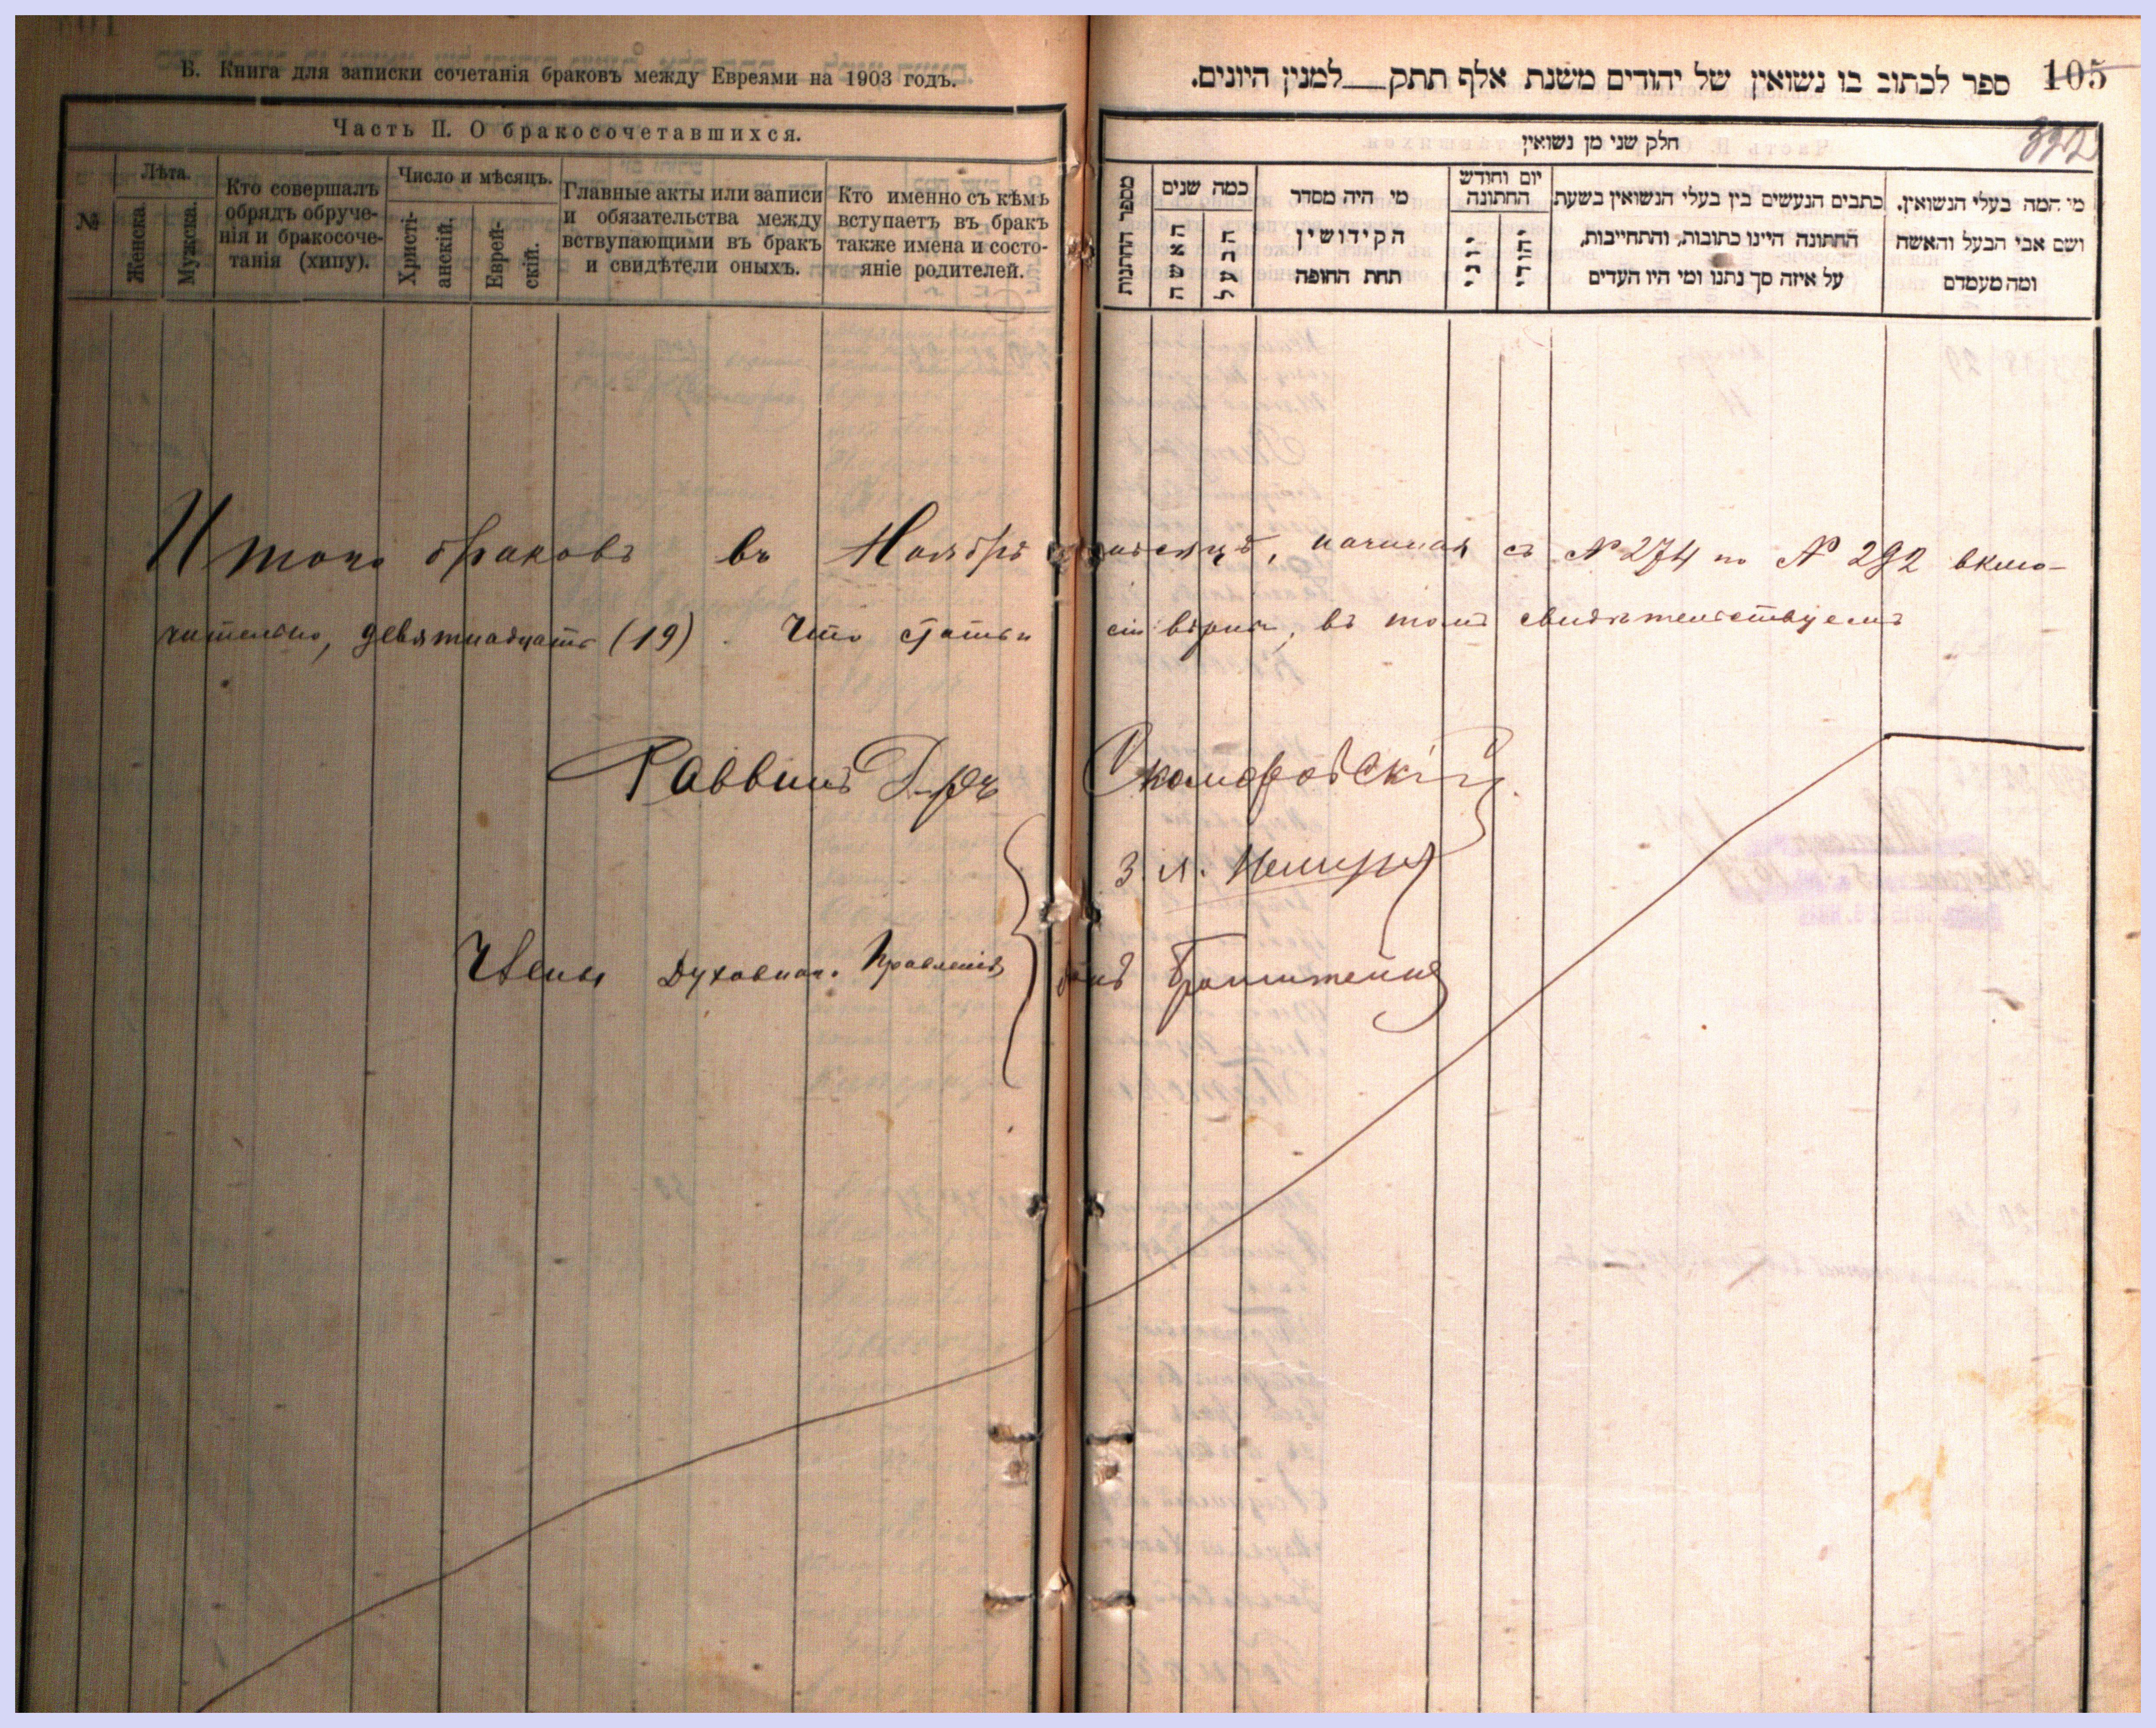 Б. Книга для записки сочетанія браковъ между Евреями на 1903 годъ.
Часть II. О бракосочетавшихся.
№
Лѣта.
Женска.
Мужска.
Кто совершалъ
обрядъ обруче-
нія и бракосоче-
танія (хипу).
Число и мѣсяцъ.
Христі-
анскій.
Еврей-
скій.
Главные акты или записи
и обязательства между
вствупающими въ бракъ
и свидѣтели оныхъ.
Кто именно съ кѣмъ
вступаетъ въ бракъ
также имена и состо-
яніе родителей.
105
ספר לכתוב בו נשואין של יהודים משנת אלף תתק__למנין היונים.
חלק שני מן נשואין
מספר החתונות
כמה שנים
האשה
הבעל
מי היה מסדר
הקידושין
תחת החופה
יום וחודש
החתונה
יוני
יהודי
כתבים הנעשים בין בעלי הנשואין בשעת
החתונה היינו כתובות, והתחייבות,
על איזה סך נתנו ומי היו העדים
מי המה בעלי הנשואין.
ושם אבי הבעל והאשה
ומה מעמדם
Итого браковъ въ Ноябрѣ мѣсяцѣ, начиная съ № 274 по № 292 вклю-
чительно, девятнадцать (19). Что статьи сіи вѣрны, въ томъ свидѣтельствуемъ
Раввинъ Д-ръ Скоморовскій
З. Я.
Члены Духовнаго Правленія
Бронштейнъ